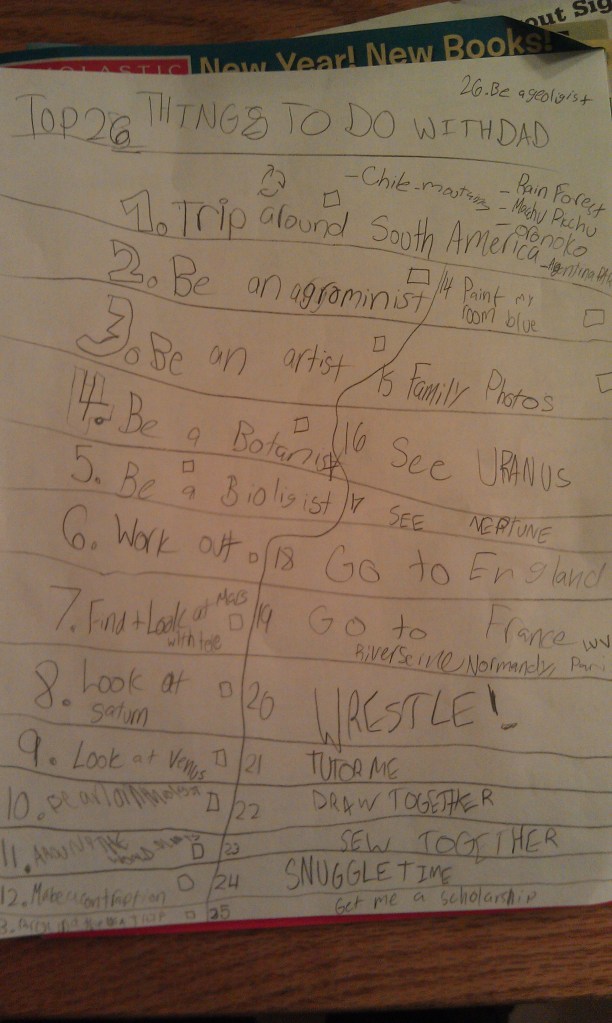 out Sig
SCHOLASTIC New Year! New Books!
26. Be a geoligist
TOP 26 THINGS TO DO WITH DAD
1. Trip around South America
- Chile - mountains
- Rain Forest
- Machu Picchu
- oronoko
- Argentina
2. Be an agrominist
3. Be an artist
4. Be a Botanist
5. Be a Bioligist
6. Work out
7. Find + Look at Mars
with tele
8. Look at
Saturn
9. Look at Venus
10. Be an
11. AROUND THE
12. Make a contraption
14 Paint my
room blue
15 Family Photos
16 See URANUS
17 SEE NEPTUNE
18 Go to England
19 Go to France
River seine, Normandy, Paris
20 WRESTLE!
21 TUTOR ME
22 DRAW TOGETHER
23 SEW TOGETHER
24 SNUGGLE TIME
25 Get me a scholarship